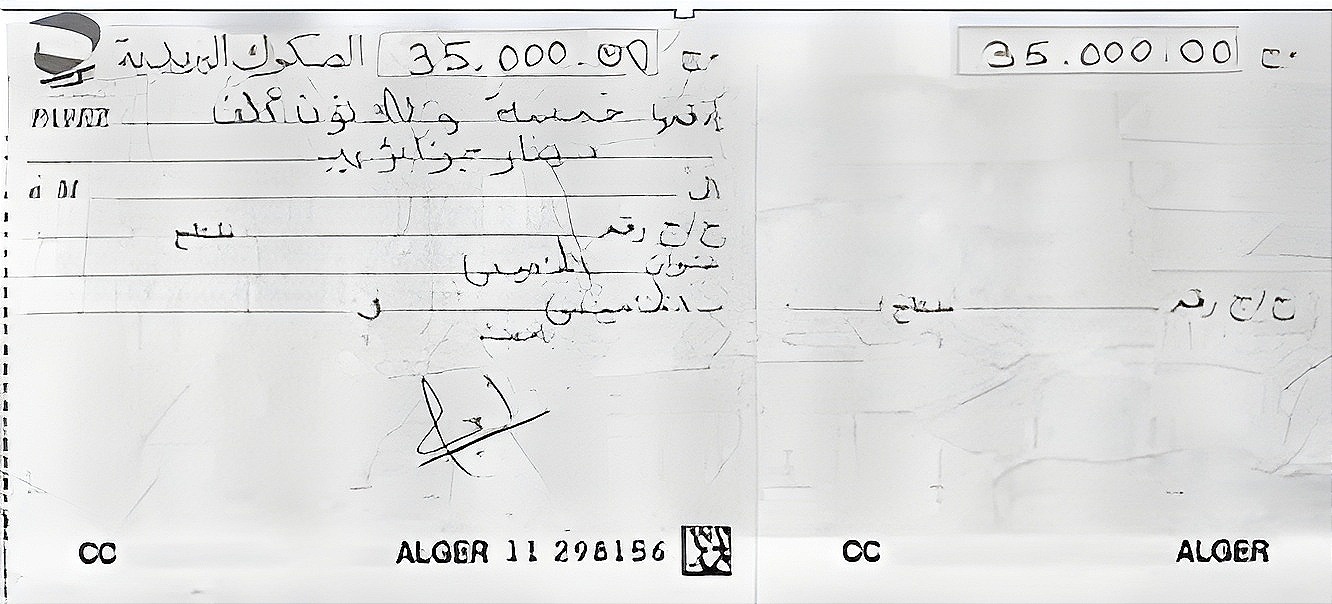 الصكوك البريدية 35.000.00 دج
PAYEZ إدفعوا خمسة و ثلاثون ألف
دينار جزائري
إلى
ح/ج رقم مفتاح
عنوان
CC ALGER 11 298156
35.000.00 دج
ح/ج رقم مفتاح
CC ALGER